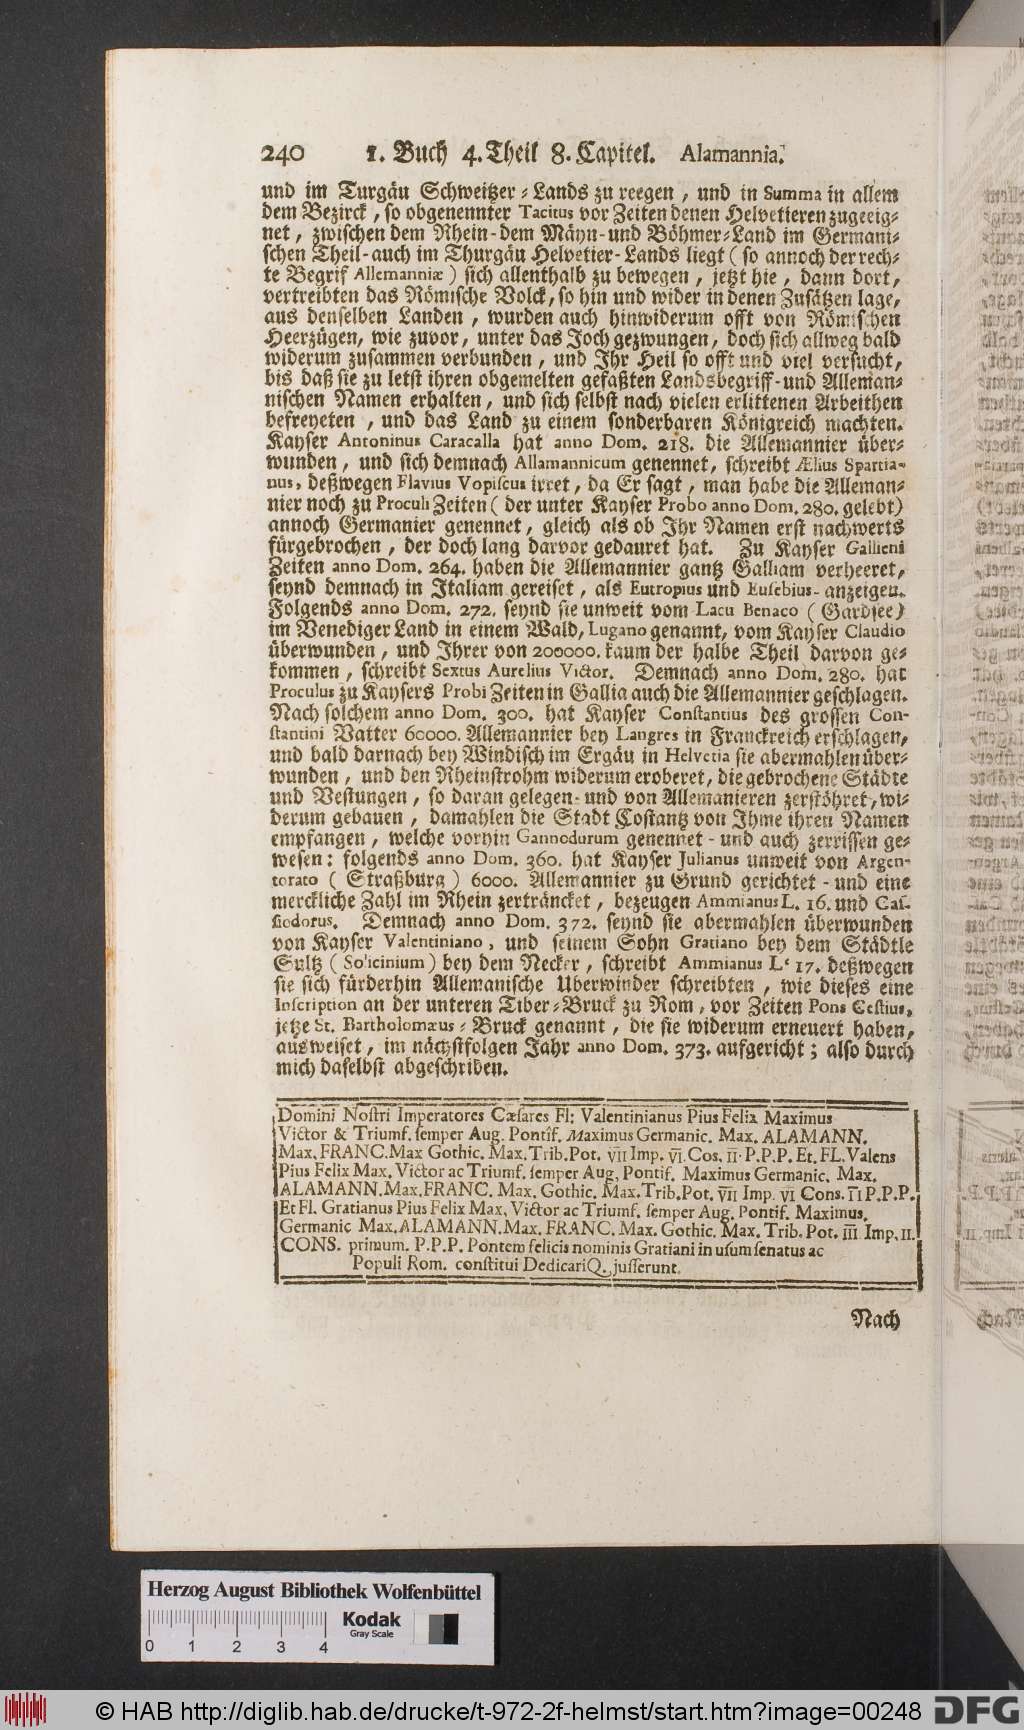 240 1. Buch 4. Theil 8. Capitel. Alamannia.
und im Turgäu Schweitzer-Lands zu reegen, und in Summa in allem
dem Bezirck, so obgenennter Tacitus vor Zeiten denen Helvetieren zugeeig-
net, zwischen dem Rhein-dem Mäyn-und Böhmer-Land im Germani-
schen Theil-auch im Thurgäu Helvetier-Lands liegt (so annoch der rech-
te Begrif Allemanniæ) sich allenthalb zu bewegen, jetzt hie, dann dort,
vertreibten das Römische Volck, so hin und wider in denen Zusätzen lage,
aus denselben Landen, wurden auch hinwiderum offt von Römischen
Heerzügen, wie zuvor, unter das Joch gezwungen, doch sich allweg bald
widerum zusammen verbunden, und Ihr Heil so offt und viel versucht,
bis daß sie zu letst ihren obgemelten gefaßten Landsbegriff-und Alleman-
nischen Namen erhalten, und sich selbst nach vielen erlittenen Arbeithen
befreyeten, und das Land zu einem sonderbaren Königreich machten.
Kayser Antoninus Caracalla hat anno Dom. 218. die Allemannier über-
wunden, und sich demnach Allamannicum genennet, schreibt Ælius Spartia-
nus, deßwegen Flavius Vopiscus irret, da Er sagt, man habe die Alleman-
nier noch zu Proculi Zeiten (der unter Kayser Probo anno Dom. 280. gelebt)
annoch Germanier genennet, gleich als ob Ihr Namen erst nachwerts
fürgebrochen, der doch lang darvor gedauret hat. Zu Kayser Gallieni
Zeiten anno Dom. 264. haben die Allemannier gantz Galliam verheeret,
seynd demnach in Italiam gereiset, als Eutropius und Eusebius-anzeigen.
Folgends anno Dom. 272. seynd sie unweit vom Lacu Benaco (Gardsee)
im Venediger Land in einem Wald, Lugano genannt, vom Kayser Claudio
überwunden, und Ihrer von 200000. kaum der halbe Theil darvon ge-
kommen, schreibt Sextus Aurelius Victor. Demnach anno Dom. 280. hat
Proculus zu Kaysers Probi Zeiten in Gallia auch die Allemannier geschlagen.
Nach solchem anno Dom. 300. hat Kayser Constantius des grossen Con-
stantini Vatter 60000. Allemannier bey Langres in Franckreich erschlagen,
und bald darnach bey Windisch im Ergäu in Helvetia sie abermahlen über-
wunden, und den Rheinstrohm widerum eroberet, die gebrochene Städte
und Vestungen, so daran gelegen-und von Allemanieren zerstöhret, wi-
derum gebauen, damahlen die Stadt Costantz von Ihme ihren Namen
empfangen, welche vorhin Gannodurum genennet-und auch zerrissen ge-
wesen: folgends anno Dom. 360. hat Kayser Julianus unweit von Argen-
torato (Straßburg) 6000. Allemannier zu Grund gerichtet-und eine
merckliche Zahl im Rhein zerträncket, bezeugen Ammianus L. 16. und Cas-
siodorus. Demnach anno Dom. 372. seynd sie abermahlen überwunden
von Kayser Valentiniano, und seinem Sohn Gratiano bey dem Städtle
Sultz (Solicinium) bey dem Necker, schreibt Ammianus L. 17. deßwegen
sie sich fürderhin Allemanische Uberwinder schreibten, wie dieses eine
Inscription an der unteren Tiber-Bruck zu Rom, vor Zeiten Pons Cestius,
jetze St. Bartholomæus-Bruck genannt, die sie widerum erneuert haben,
ausweiset, im nächstfolgen Jahr anno Dom. 373. aufgericht; also durch
mich daselbst abgeschriben.
Domini Nostri Imperatores Cæsares Fl: Valentinianus Pius Felix Maximus
Victor & Triumf. semper Aug. Pontif. Maximus Germanic. Max. ALAMANN.
Max. FRANC. Max Gothic. Max. Trib. Pot. VII Imp. VI. Cos. II. P.P.P. Et. FL. Valens
Pius Felix Max. Victor ac Triumf. semper Aug. Pontif. Maximus Germanic. Max.
ALAMANN. Max. FRANC. Max. Gothic. Max. Trib. Pot. VII Imp. VI Cons. II P.P.P.
Et Fl. Gratianus Pius Felix Max. Victor ac Triumf. semper Aug. Pontif. Maximus.
Germanic Max. ALAMANN. Max. FRANC. Max. Gothic. Max. Trib. Pot. III Imp. II.
CONS. primum. P.P.P. Pontem felicis nominis Gratiani in usum senatus ac
Populi Rom. constitui Dedicari Q. jusserunt.
Nach
Herzog August Bibliothek Wolfenbüttel
0 1 2 3 4
Kodak
Gray Scale
© HAB http://diglib.hab.de/drucke/t-972-2f-helmst/start.htm?image=00248
DFG